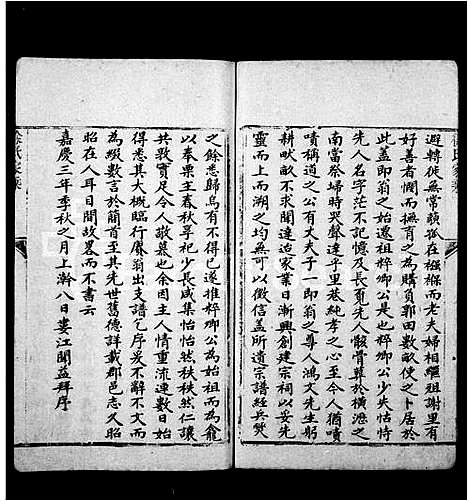 避轉徙無常額孤在襁褓而老夫婦相繼殂謝里有
好善者憫而撫育之為購負郭田數畝使之卜居於
此蓋即翁之始遷祖粹卿公是也粹卿公少失怙恃
先人名字茫不記憶及長覓先人骸骨葬於橫涇之
南當祭歸時哭聲達乎里巷純孝之心至今人猶嘖
嘖稱道之公有丈夫子一即翁之尊人鴻文先生躬
耕畎畝不求聞達治家業日漸興創建宗祠以妥先
靈而上而溯之四世均無可以徵信蓋所遺宗譜經兵燹
之餘悉歸烏有不得已遂推粹卿公為始祖而為龕
以奉栗主春秋享祀少長咸集怡怡然秩秩然仁讓
共敦寔足令人敬慕也余因主人情重流連數日始
得悉其大概臨行賡翁出支譜乞序爰不辭不文而
為綴數言於簡首至其先世舊德詳載郡邑志久昭
昭在人耳目間故畧而不書云
嘉慶三年季秋之月上澣八日婁江聞益拜序
徐氏家乘